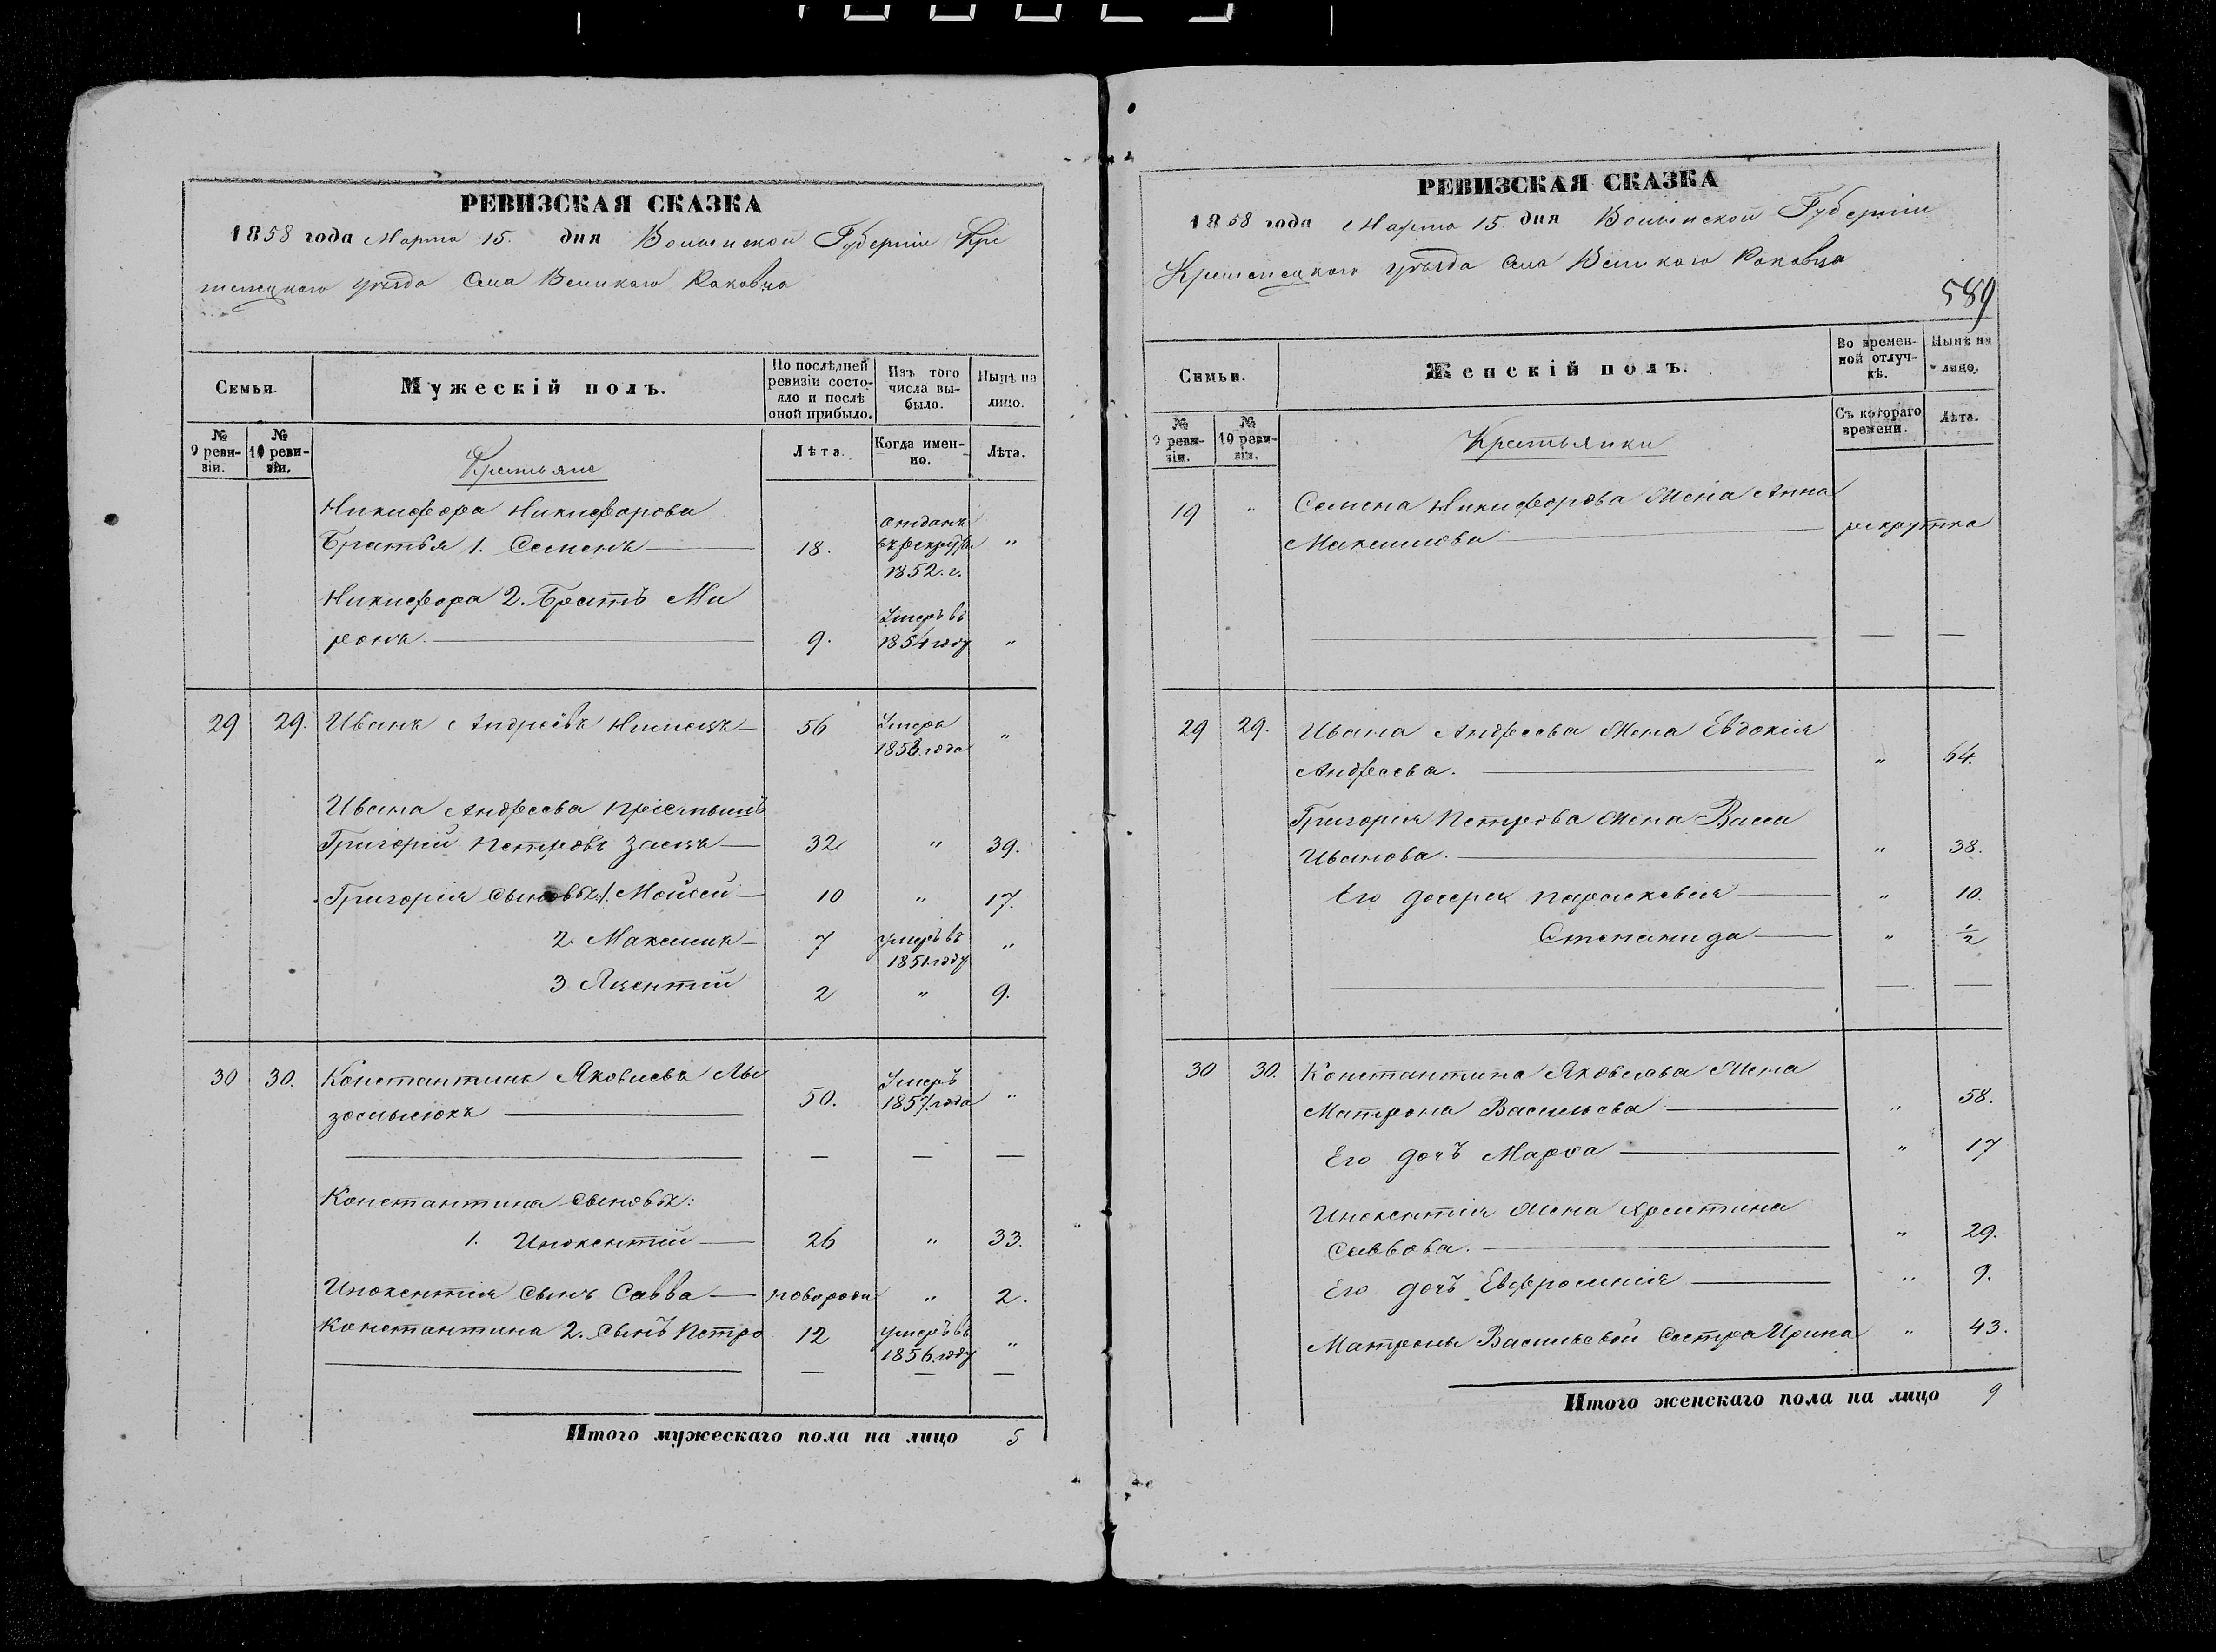 РЕВИЗСКАЯ СКАЗКА
1858 года Марта 15. дня Волынской Губерніи Кре
менецкого уѣзда Села Великого Раковца
Семьи.
Мужескій полъ.
По послѣдней ревизіи состояло и послѣ оной прибыло.
Изъ того числа выбыло.
Нынѣ на лицо.
№ 9 ревизіи.
№ 10 ревизіи.
Крестьяне
Лѣта.
Когда именно.
Лѣта.
Никифора Никифорова
Братья 1. Семенъ 18. отданъ въ рекруты 1852. г. "
Никифора 2. Братъ Ми
ронъ. 9. Умеръ въ 1854 году "
29 29. Иванъ Андреевъ 56 Умеръ 1858. года "
Ивана Андреева пріемышъ
Григорій Петровъ Заецъ 32 " 39.
Григорія сыновья: 1. Мойсей 10 " 17.
2. Максимъ 7 умеръ въ 1851. году "
3 Якентій 2 " 9.
30 30. Константинъ Яковлевъ Лы
зомысюкъ 50. Умеръ 1857. года "
Константина сыновья:
1. Инокентій 26 " 33.
Инокентія сынъ Савва новорожд " 2.
Константина 2. сынъ Петро 12 умеръ въ 1856. году "
Итого мужескаго пола на лицо 5
РЕВИЗСКАЯ СКАЗКА
1858 года Марта 15. дня Волынской Губерніи
Кременецкого уѣзда Села Великого Раковца
589
Семьи.
Женскій полъ.
Во временной отлучкѣ.
Нынѣ на лицо.
№ 9 ревизіи.
№ 10 ревизіи.
Крестьянки
Съ котораго времени.
Лѣта.
19 " Семена Никифорова жена Анна
Максимова рекрутка
29 29. Ивана Андреева жена Евдокія
Андреева. " 64.
Григорія Петрова жена Васса
Иванова. " 38.
Его дочери Параскевія " 10.
Степанида " 1/2
30 30. Константина Яковлева жена
Матрона Васильева " 58.
Его дочь Марфа " 17
Инокентія жена Христина
Саввова. " 29.
Его дочь Евфросинія " 9.
Матроны Васильевой сестра Ирина " 43.
Итого женскаго пола на лицо 9